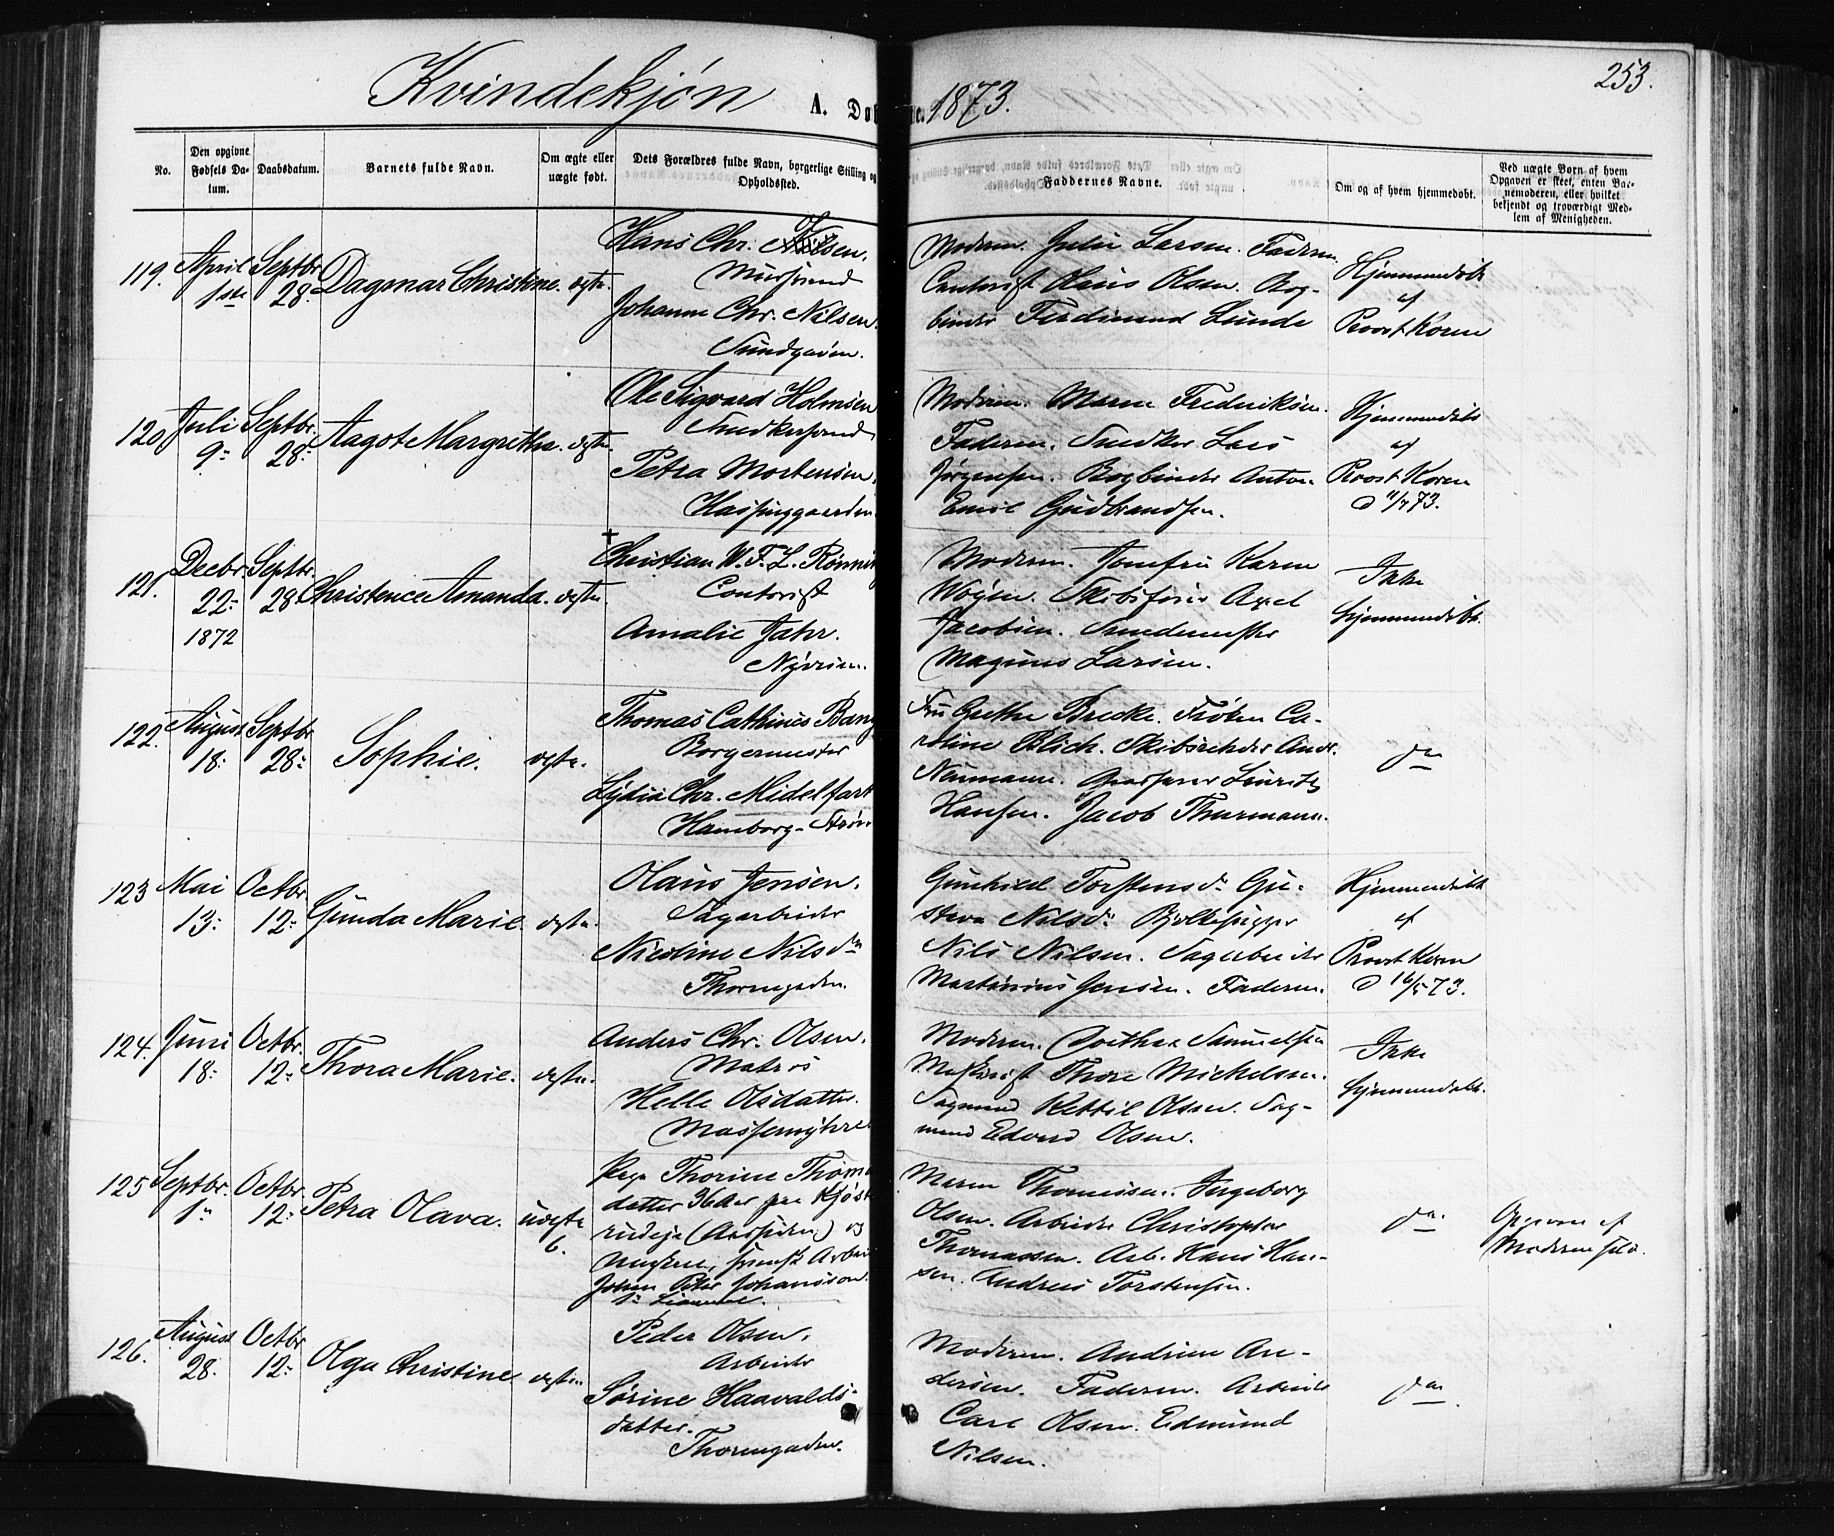 253.
Kvindekjøn A. Døb ne. 1873.
No.
Den opgivne Fødsels Datum.
Daabsdatum.
Barnets fulde Navn.
Om ægte eller uægte født.
Dets Forældres fulde Navn, borgerlige Stilling og Opholdssted.
Faddernes Navne.
Om og af hvem hjemmedøbt.
Ved uægte Børn af hvem Opgaven er skeet, enten Barnemoderen, eller hvilket bekjendt og troværdigt Medlem af Menigheden.
119. April 1ste Septbr 28 Dagmar Christine. ægte.
Hans Chr.
Muursvend
Johanne Chr. Nilsen.
Moderen. Julie Larsen. Faderen.
Contorist Hans Olsen. Bog-
binder Ferdinand Lunde
Hjemmedøbt
af
Provst Koren
120 Juli 9: Septbr. 28: Aagot Margrethe. ægte.
Ole Sigvard Holmsen
Snedkersvend
Petra Mortensen.
Moderen. Maren Frederiksen.
Faderen. Snedker Lars
Jørgensen. Bogbinder Anton
Emil Gudbrandsen.
Hjemmedøbt
af
Provst Koren
d 11/7 73.
121. Decbr. 22: 1872 Septbr. 28 Christence Amanda. ægte.
† Christian W. F. L. Rønning
Contorist
Amalie Jahr.
Nyveien.
Moderen. Jomfru Karen
Skibsfører Axel
Jacobsen. Smedmester
Magnus Larsen.
Ikke
hjemmedøbt.
122. August 18: Septbr 28: Sophie. ægte.
Thomas Cathinus Bang
Borgermester
Lydia Chr. Midelfart
Hamborg-Strøm
Fru Grethe Brecke. Frøken Ca-
roline Blich. Skibsrheder Andr.
Neumann. Lauritz
Hansen. Jacob Thurmann.
do
123 Mai 13: Octbr. 12: Gunda Marie. ægte.
Olaus Jensen.
Sagarbeider
Nicoline Nilsdtr
Thornegaden.
Gunhild Torstensd. Gu-
stava Nilsd:
Nils Nilsen. Sagarbeider
Martinius Jensen. Faderen.
Hjemmedøbt
af
Provst Koren
d 16/5 73.
124. Juni 18: Octbr. 12: Thora Marie. ægte.
Anders Chr. Olsen.
Matros
Helle Olsdatter.
Moderen. Dorthea Samuelsen
Maskinist Thore Michelsen.
Sagmand Kettil Olsen. Sag-
mand Edvard Olsen.
Ikke
hjemmedøbt.
125 Septbr. 1ste Octbr. 12: Petra Olava. uægte
6.
Pige Thorine Thoms
datter 36 Aar fra Kjøst
rudeje og
svensk Arbeid
Johan Peter Johansson.
Maren Thomassen. Ingeborg
Olsen. Arbeider Christopher
Thomassen. Arb. Hans Han-
sen. Andreas Torstensen.
do
Opgivne af
Moderen selv.
126. August 28. Octbr 12: Olga Christine ægte.
Peder Olsen.
Arbeider
Sørine Haavalds-
datter.
Thornegaden.
Moderen. Andrine An-
dersen. Faderen. Arbeider
Carl Olsen. Edmund
Nilsen.
do